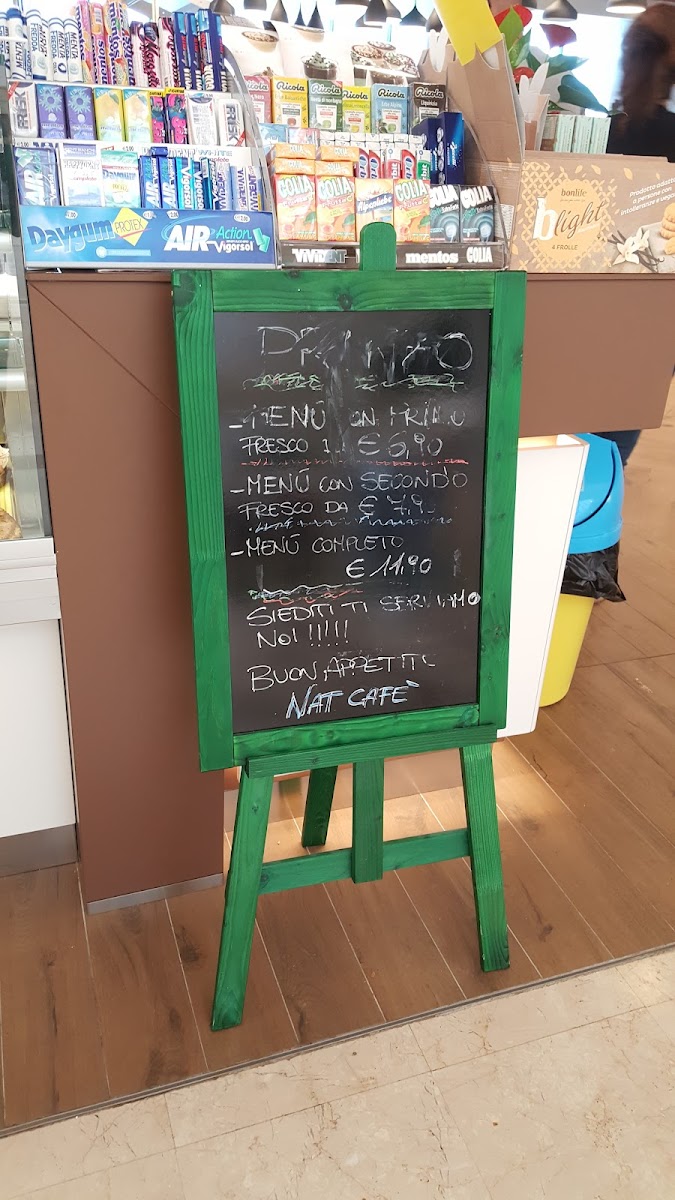 Ricola
Ricola
Ricola
Ricola
Ricola
Ricola
GOLIA
GOLIA
Alpenliebe
GOLIA
GOLIA
GOLIA
Daygum PROTEX
AIR Action
Vigorsol
VIVIDENT
mentos
GOLIA
bonlife
blight
4 FROLLE
PRANZO
-MENÚ CON PRIMO
FRESCO € 6,90
-MENÚ CON SECONDO
FRESCO DA € 7,90
-MENÚ COMPLETO
€ 11,90
SIEDITI TI SERVIAMO
NOI !!!!!
BUON APPETITO
NAT CAFÈ